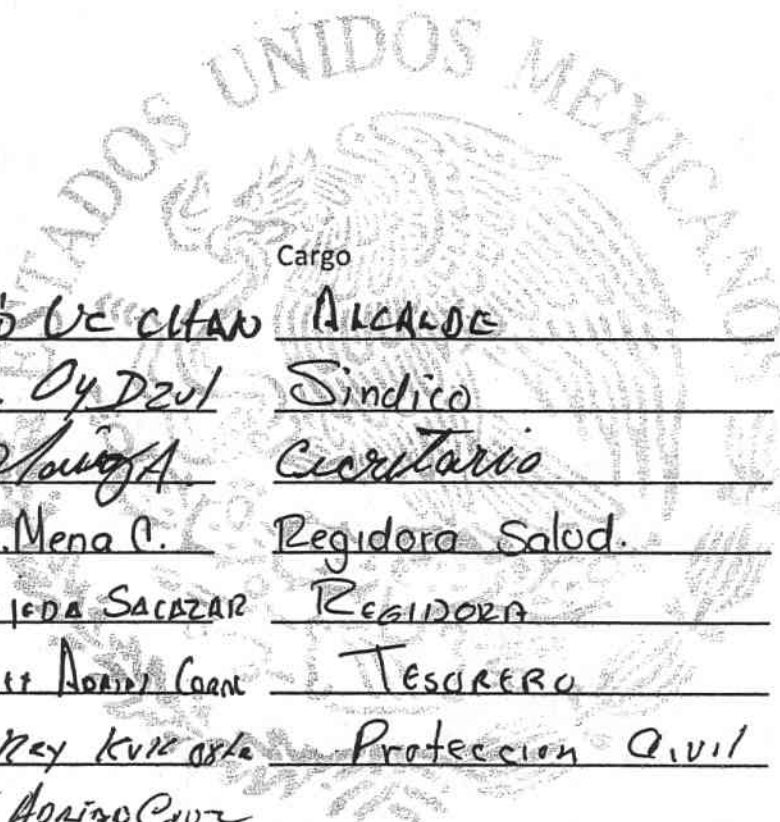 ESTADOS UNIDOS MEXICANOS
Cargo
Uc CHAN ALCALDE
Oy Dzul Sindico
A. Cecretario
Mena C. Regidora Salud.
SALAZAR REGIDORA
TESORERO
Rey Protección Civil
Cruz